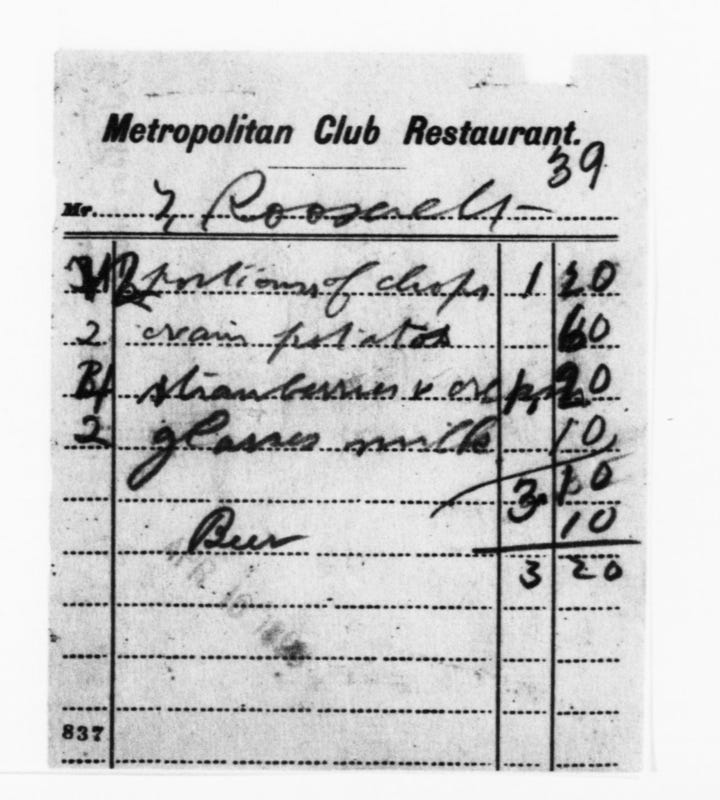 Metropolitan Club Restaurant.
39
Mr. T, Roosevelt
2 portions of chops 1 20
2 cream potatoes 60
strawberries & cream 1, 20
2 glasses milk 10
3. 10
Beer 10
3 20
APR 16
837